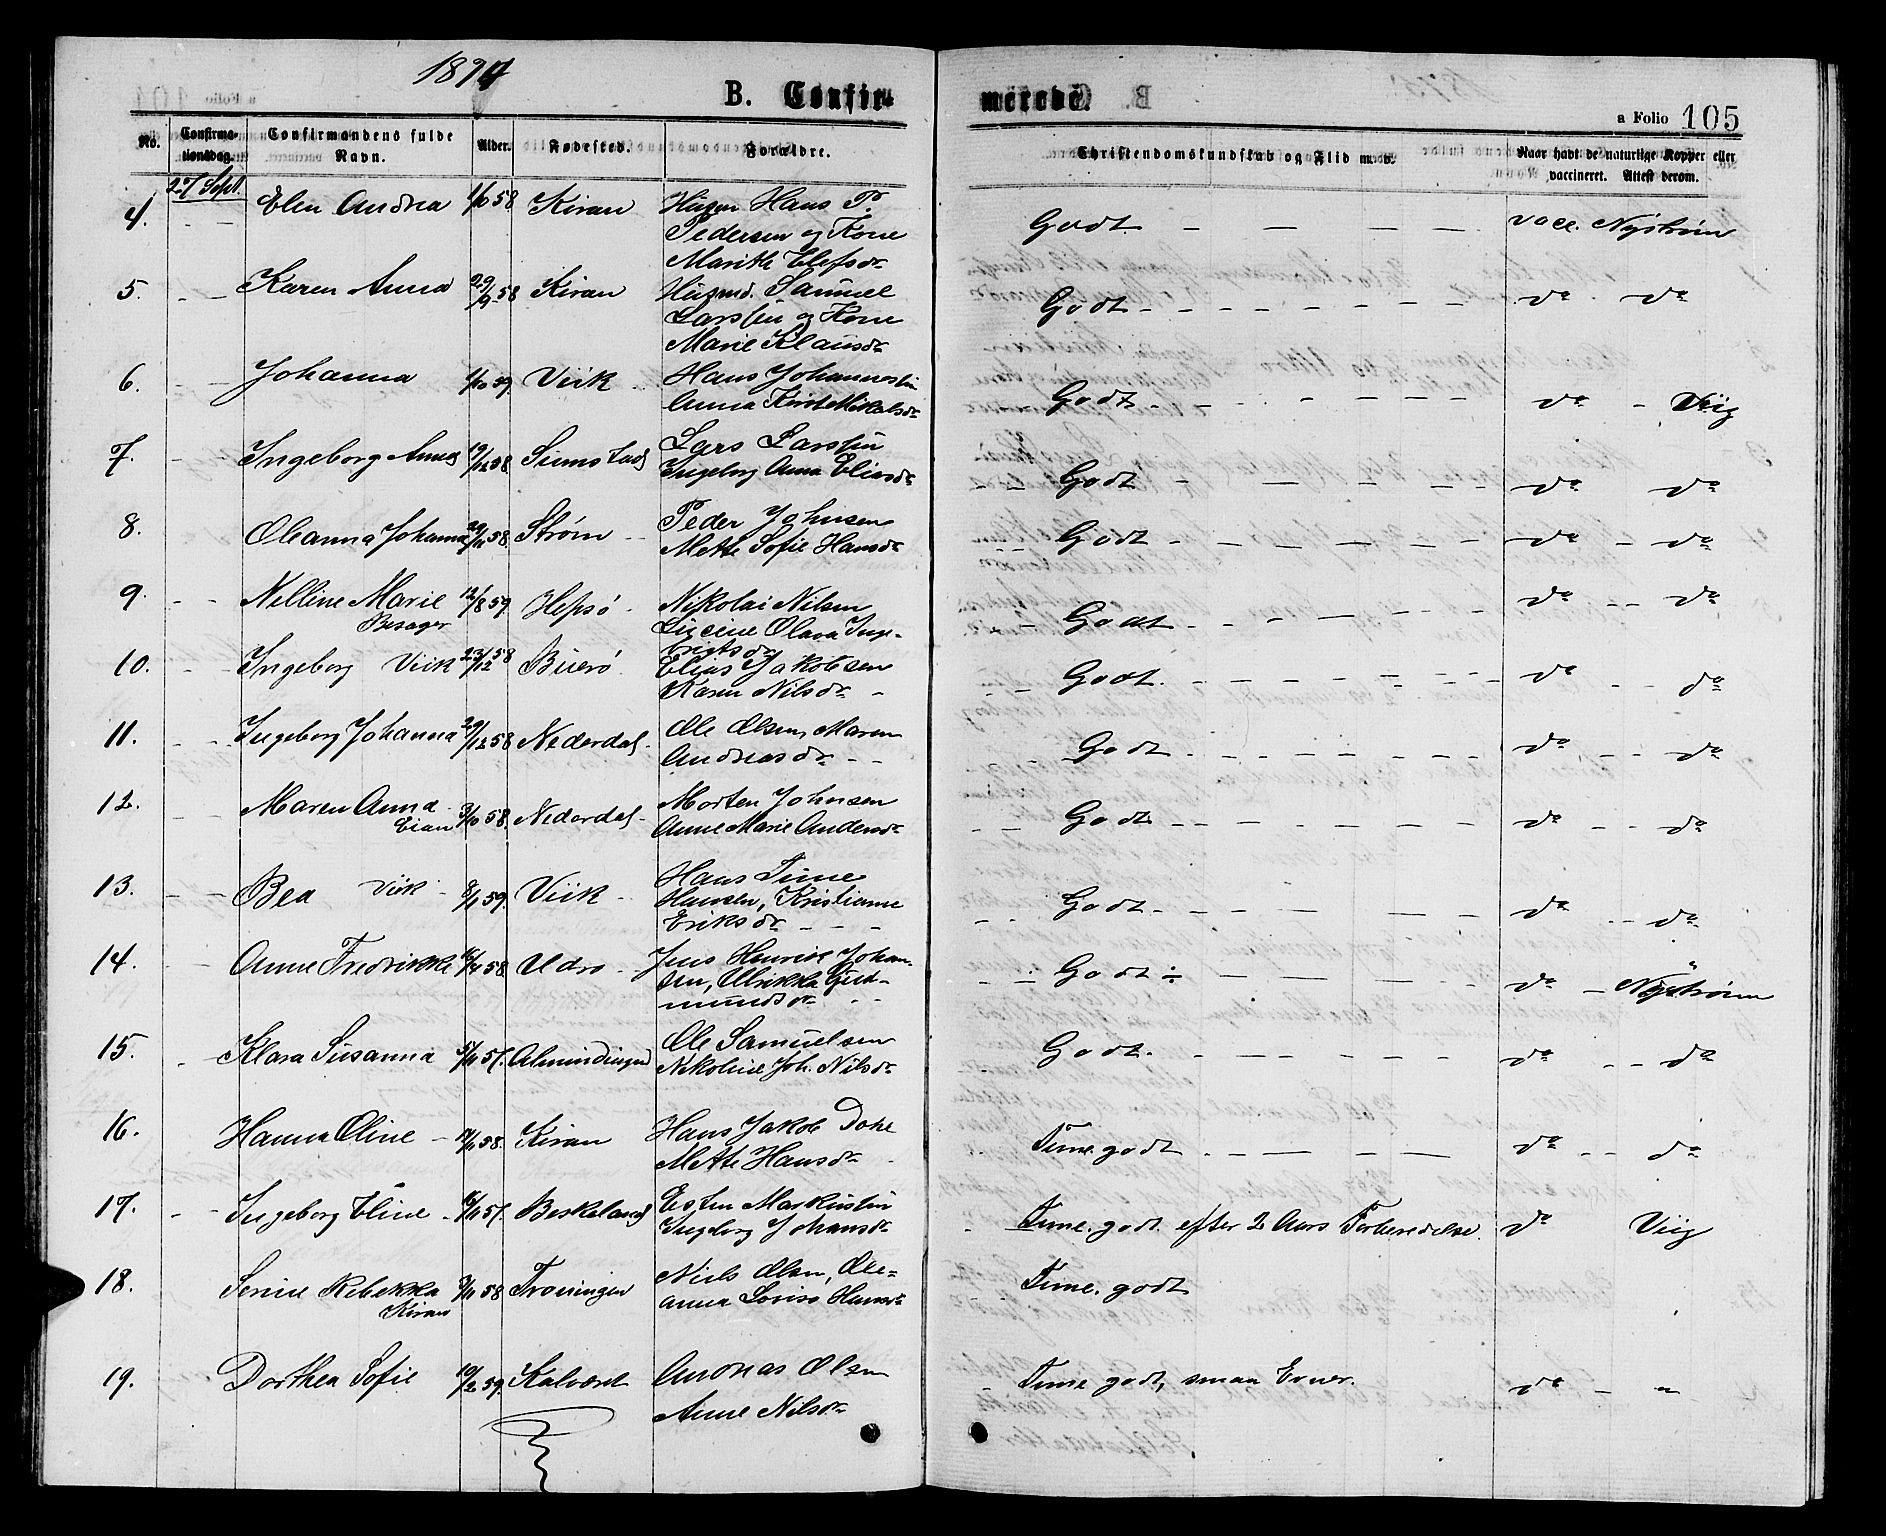 1874
B. Confirmerede.
a Folio 105
No. Confirmationsdag. Confirmandens fulde Navn. Alder. Fødested. Forældre. Christendomskundskab og Flid m. v. Naar havt de naturlige Kopper eller vaccineret. Attest derom.
27 Sept.
4. Elen Andrea 1/10 58 Kiran Husm Hans P. Godt vacc. Nystrøm
Pedersen og Kone
Marith Elefsdr
5. Karen Anna 29/9 58 Kiran Husmd. Samuel Godt do do
Larsen og Kone
Marie Klausdr
6. Johanna 1/10 59 Viik Hans Johannesen Godt do Viig
Anna Kirst Mikalsdr
7. Ingeborg Anna 19/12 58 Sumstad Lars Larsen Godt do do
Ingeborg Anna Eliasdr
8. Oleanna Johanna 58 Strøm Peder Johnsen Godt do do
Mette Sofie Hansdr
9. Nelline Marie 12/8 59 Hepsø Nikolai Nilsen Godt do do
Besager Olava Inge-
brigtsdr
10. Ingeborg Viik 23/12 58 Buerø Elias Jakobsen Godt do do
Karen Nilsdr
11. Ingeborg Johanna 29/12 58 Nederdal Ole Olsen, Maren Godt do do
Andreasdr
12. Maren Anna 3/10 58 Nederdal Morten Johnsen Godt do do
Eian Anne Marie Andersdr
13. Bea Viik 8/1 59 Viik Hans Tume Godt do do
Hansen, Kristianne
Eriksdr
14. Anne Fredrikke 16/4 58 Udro Jens Henrik Johan- Godt do Nystrøm
sen, Ulrikka Gud-
mundsdr
15. Klara Susanna 5/11 57 Almindingen Ole Samuelsen Godt do do
Nikoline Joh. Nilsdr
16. Hanna Oline 58 Kiran Hans Jakob Dohl Teme. godt do do
Mette Hansdr
17. Ingeborg Eline 16/11 57 Beskeland Esten Markussen Teme. godt efter 2 Aars Forberedelse. do Viig
Ingeborg Johansdr
18. Serine Rebekka 3/11 58 Troningen Niels Olsen, Ole- Teme. godt
Kiran anna Lovise Hansdr
19. Dorthea Sofie 10/2 59 Kalveset Andreas Olsen Teme godt, smaa Evner. do "
Anne Nilsdr